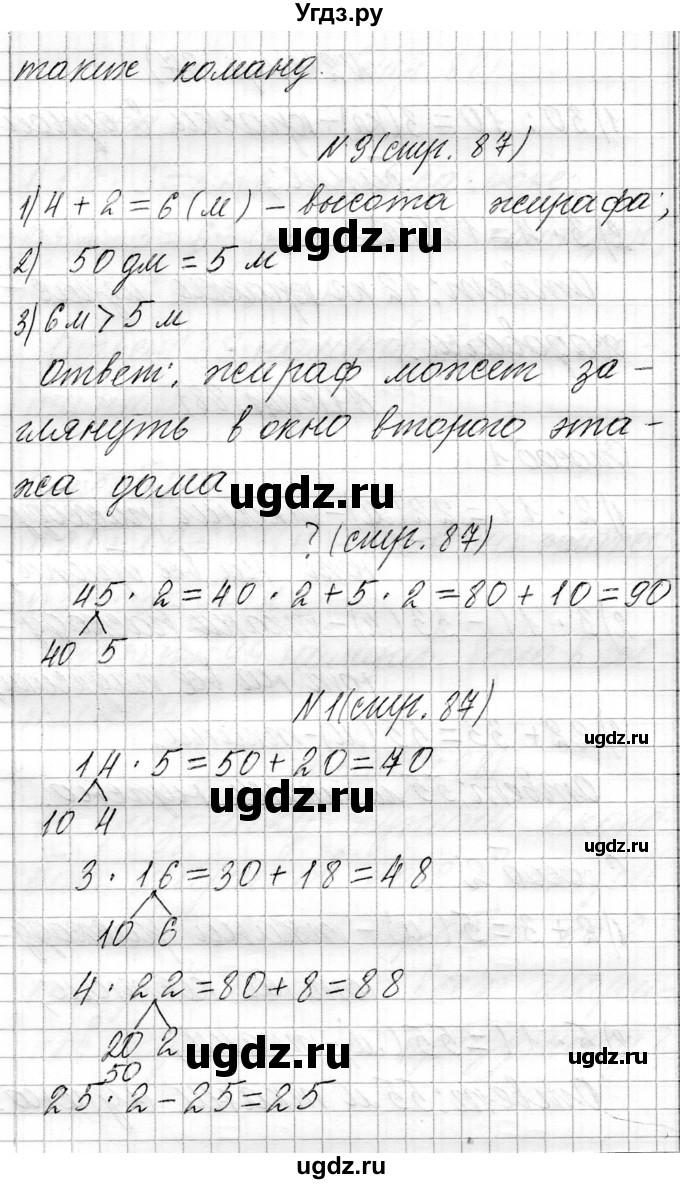 Угдз.ру
таких команд.
N9(стр. 87)
1) 4 + 2 = 6 (м) – высота жирафа;
ugdz.ru
2) 50 дм = 5 м
3) 6 м > 5 м
Ответ: жираф может за-
глянуть в окно второго эта-
жа дома
ugdz.ru
? (стр. 87)
45 · 2 = 40 · 2 + 5 · 2 = 80 + 10 = 90
40 5
N1(стр. 87)
ugdz.ru
14 · 5 = 50 + 20 = 70
ugdz.ru
10 4
3 · 16 = 30 + 18 = 48
10 6
4 · 22 = 80 + 8 = 88
20 2
ugdz.ru
ugdz.ru
50
25 · 2 – 25 = 25
ugdz.ru